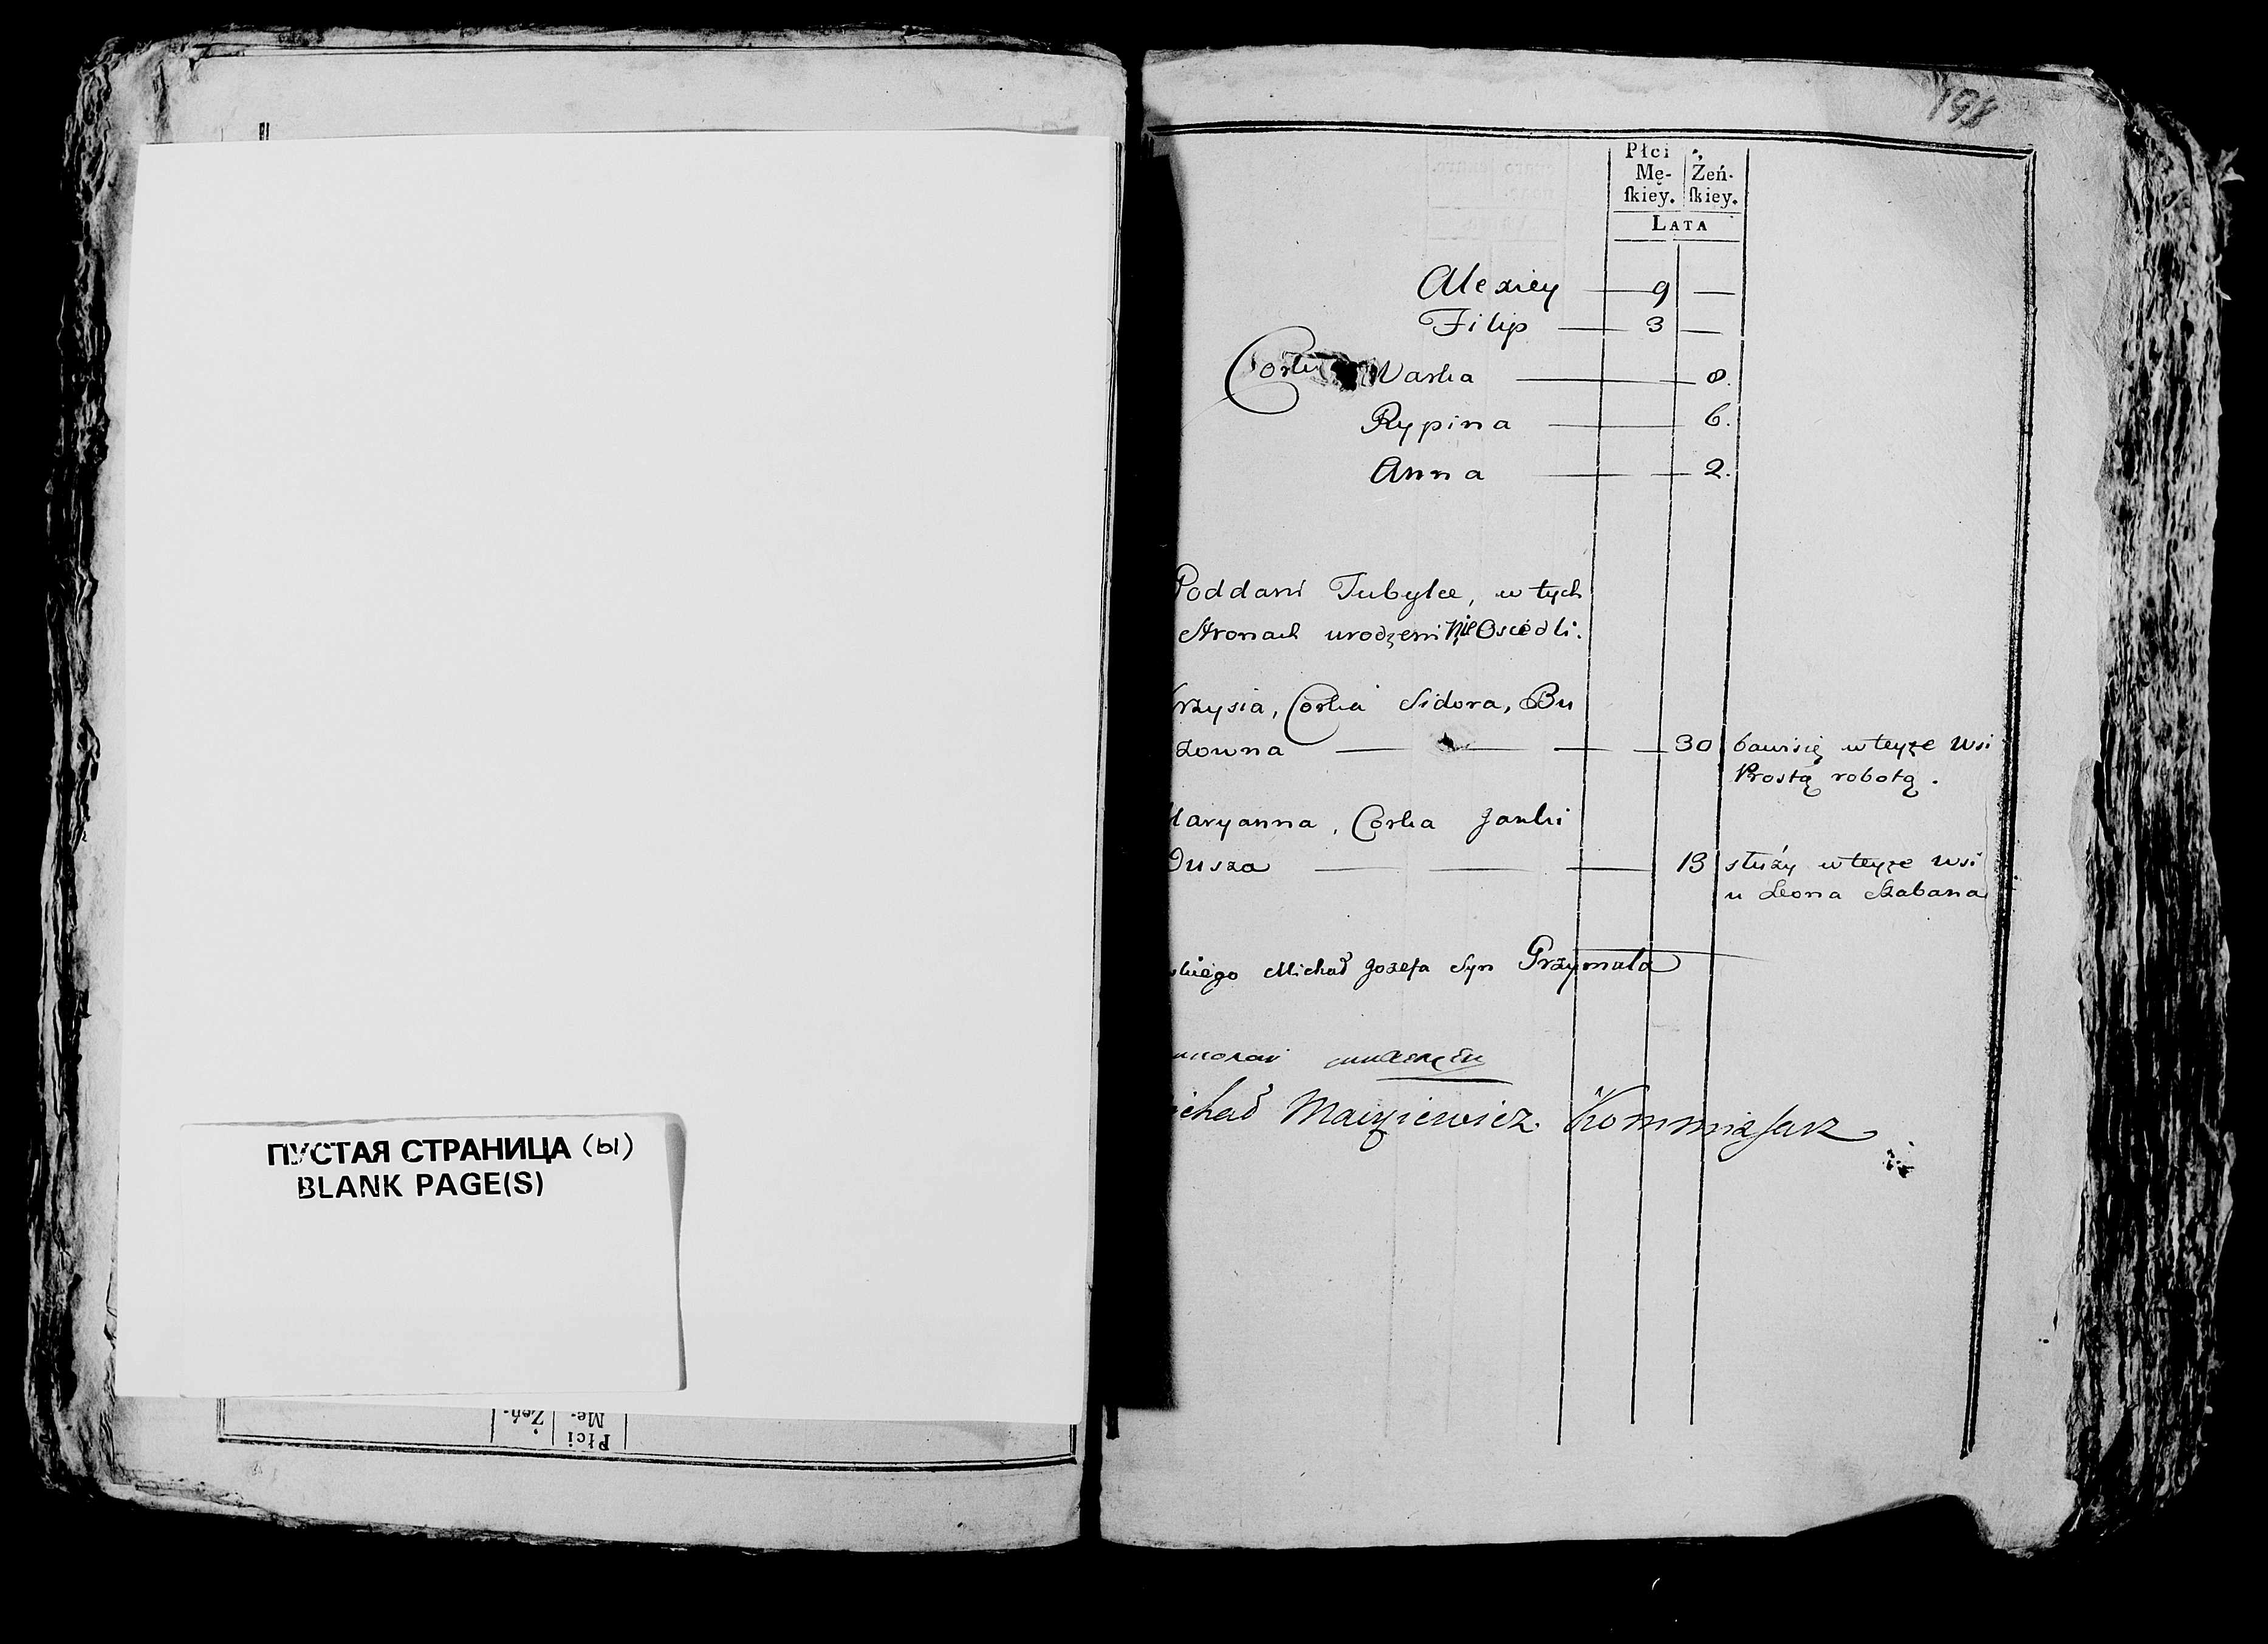 ПУСТАЯ СТРАНИЦА (ы)
BLANK PAGE(S)
Płci
Mę-
Żeń-
198
Płci
Mę- Żeń-
ſkiey. ſkiey.
LATA
Alexiey — 9 —
Filip — 3 —
Corki Warka — 8.
Rypina — 6.
Anna — 2.
Poddani Tubylce, w tych
stronach urodzeni nie Osiedli.
rzysia, Corka Sidora, Bu
zowna — — — 30 bawi się w teyże Wsi
Prostą robotą.
Maryanna, Corka Janki
Dusza — — — 13 służy w teyże Wsi
u Leona Szabana
skiego Michał Jozefa Syn Grzymała
ichał Kommissarz